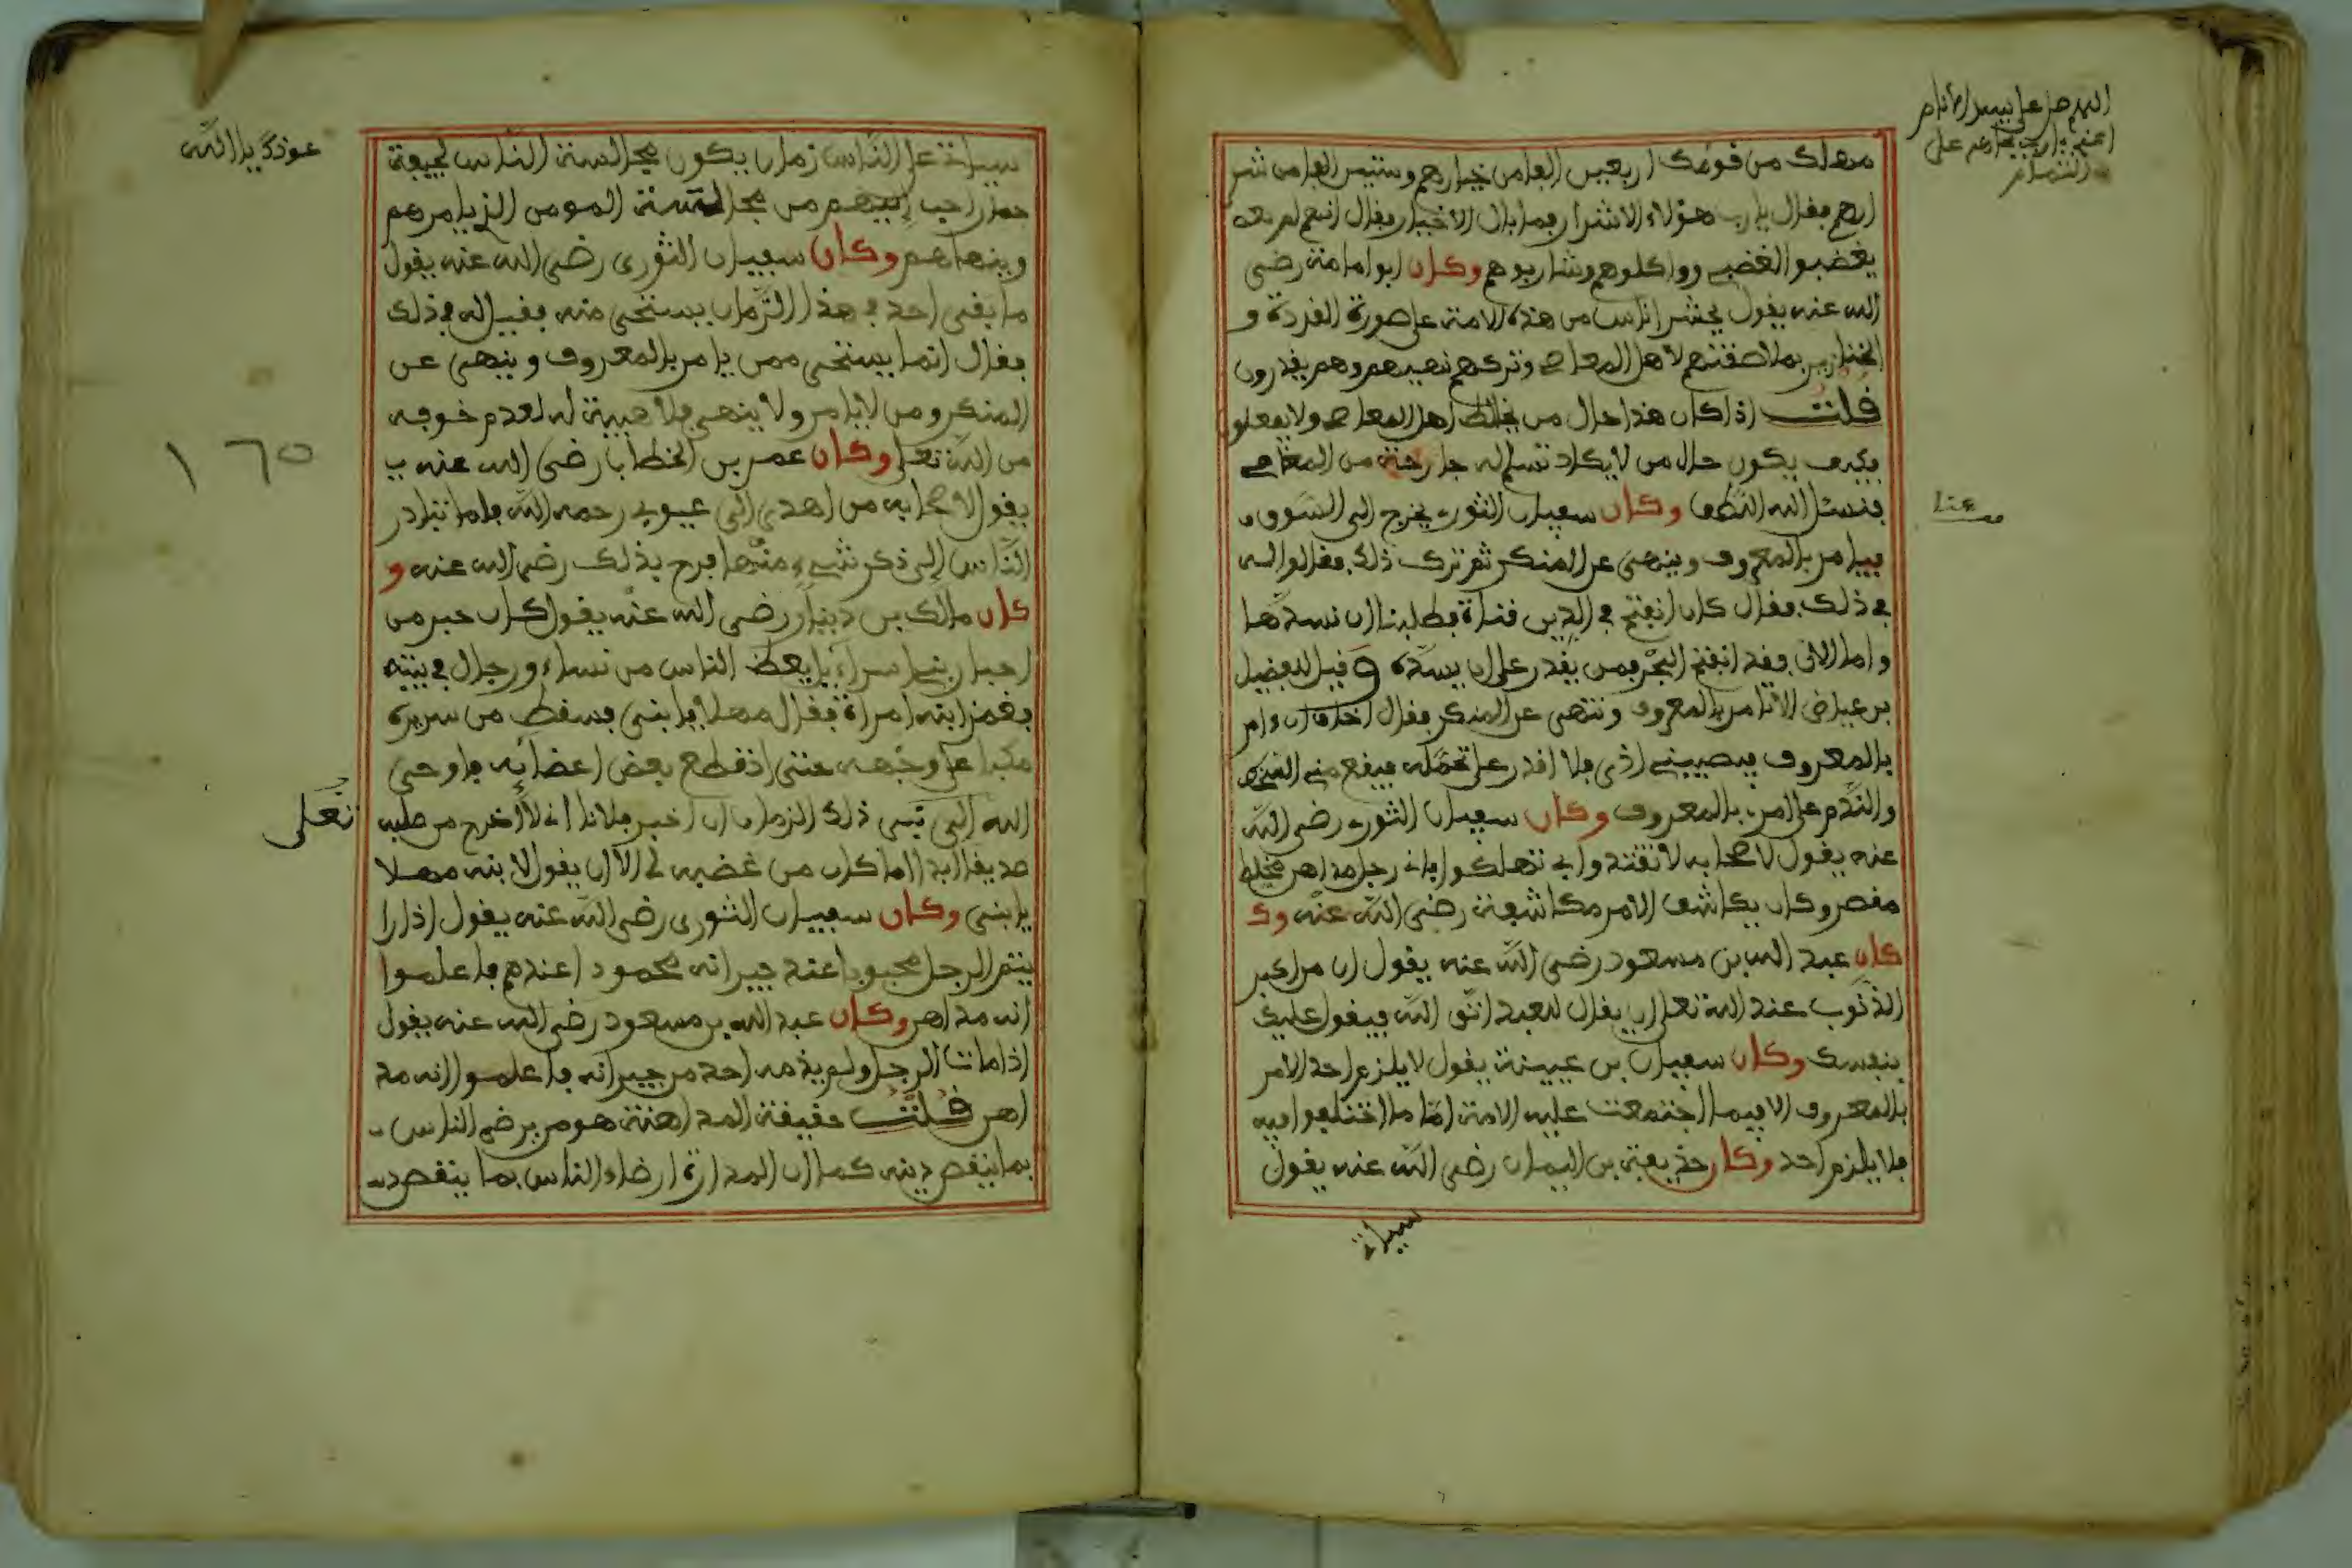 مهلك من قومك اربعين الفا من خيارهم وستين الفا من شر
ارهم فقال يارب هؤلاء الاشرار فما بال الاخيار فقال انهم لم
يغضبوا لغضبي وواكلوهم وشاربوهم وكان ابوامامة رضى
الله عنه يقول يحشر اناس من هذه الامة على صورة القردة و
الخنازير بملاصقتهم لاهل المعاصي وتركهم نهيهم وهم يقدرون
قلت اذا كان هذا حال من يخالط اهل المعاصي ولا يفعلون
فكيف يكون حال من لا يكاد تسلم له جارحة من المعاصي
فنسئل الله اللطف وكان سفيان الثوري يخرج الى السوق
فيامر بالمعروف وينهى عن المنكر ثم ترك ذلك فقالوا له
في ذلك فقال كان انفتح في الدين قناة فطلبنا ان نسدها
واما الان فقد انفتح البحر فمن يقدر على ان يسده وقيل للفضيل
بن عياض الا تامر بالمعروف وتنهى عن المنكر فقال اخاف ان ءامر
بالمعروف فيصيبني اذى فلا اقدر على تحمله فيقع مني
والندم على امري بالمعروف وكان سفيان الثوري رضى الله
عنه يقول لاصحابه لا تقتدوا بي تهلكوا فاني رجل مداهن مخلط
مقصر وكان يكاشف الامر مكاشفة رضى الله عنه وك
كان عبد الله بن مسعود رضى الله عنه يقول ان من اكبر
الذنوب عند الله تعلى ان يقال للعبد اتق الله فيقول عليك
بنفسك وكان سفيان بن عيينة يقول لا يلزم احد الامر
بالمعروف الا فيما اجتمعت عليه الامة اما ما اختلفوا فيه
فلا يلزم احد وكان حذيفة بن اليمان رضى الله عنه يقول
سياتي
عنا
سياتي على الناس زمان يكون مجالسة الناس لجيفة
حمار احب اليهم من مجالسة المومن الذي يامرهم
وينهاهم وكان سفيان الثوري رضى الله عنه يقول
ما بقى احد في هذا الزمان يستحى منه فقيل له في ذلك
فقال انما يستحى ممن يامر بالمعروف وينهى عن
المنكر ومن لا يامر ولا ينهى فلا هيبة له لعدم خوفه
من الله تعلى وكان عمر بن الخطاب رضى الله عنه ي
يقول لاصحابه من اهدى الي عيوبي رحمه الله فاما تبادر
الناس الى ذكر شيء منها فرح بذلك رضى الله عنه و
كان مالك بن دينار رضى الله عنه يقول كان حبر من
احبار بني اسراءيل يعظ الناس من نساء ورجال في بيته
فغمز ابنه امراة فقال مهلا يا بني فسقط من سريره
مكبا على وجهه حتى انقطع بعض اعضائه فاوحى
الله الى نبي ذلك الزمان ان اخبر فلانا اني لا اخرج من صلبه
صديقا ابدا اما كان من غضبه لي الا ان يقول لابنه مهلا
يا بني وكان سفيان الثوري رضى الله عنه يقول اذا را
يتم الرجل محبوبا عند جيرانه محمودا عندهم فاعلموا
انه مداهن وكان عبد الله بن مسعود رضى الله عنه يقول
اذا مات الرجل ولم يذمه احد من جيرانه فاعلموا انه مد
اهن قلت حقيقة المداهنة هو من يرضى الناس
بما ينقص دينه كما ان المداراة ارضاء الناس بما ينقص
تعلى
١٦٥